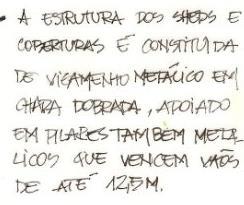 - A ESTRUTURA DOS SHEDS E
COBERTURAS É CONSTITUIDA
DE VIGAMENTO METÁLICO EM
CHAPA DOBRADA, APOIADO
EM PILARES TAMBÉM METÁ
LICOS QUE VENCEM VÃOS
DE ATÉ 12,5 M.